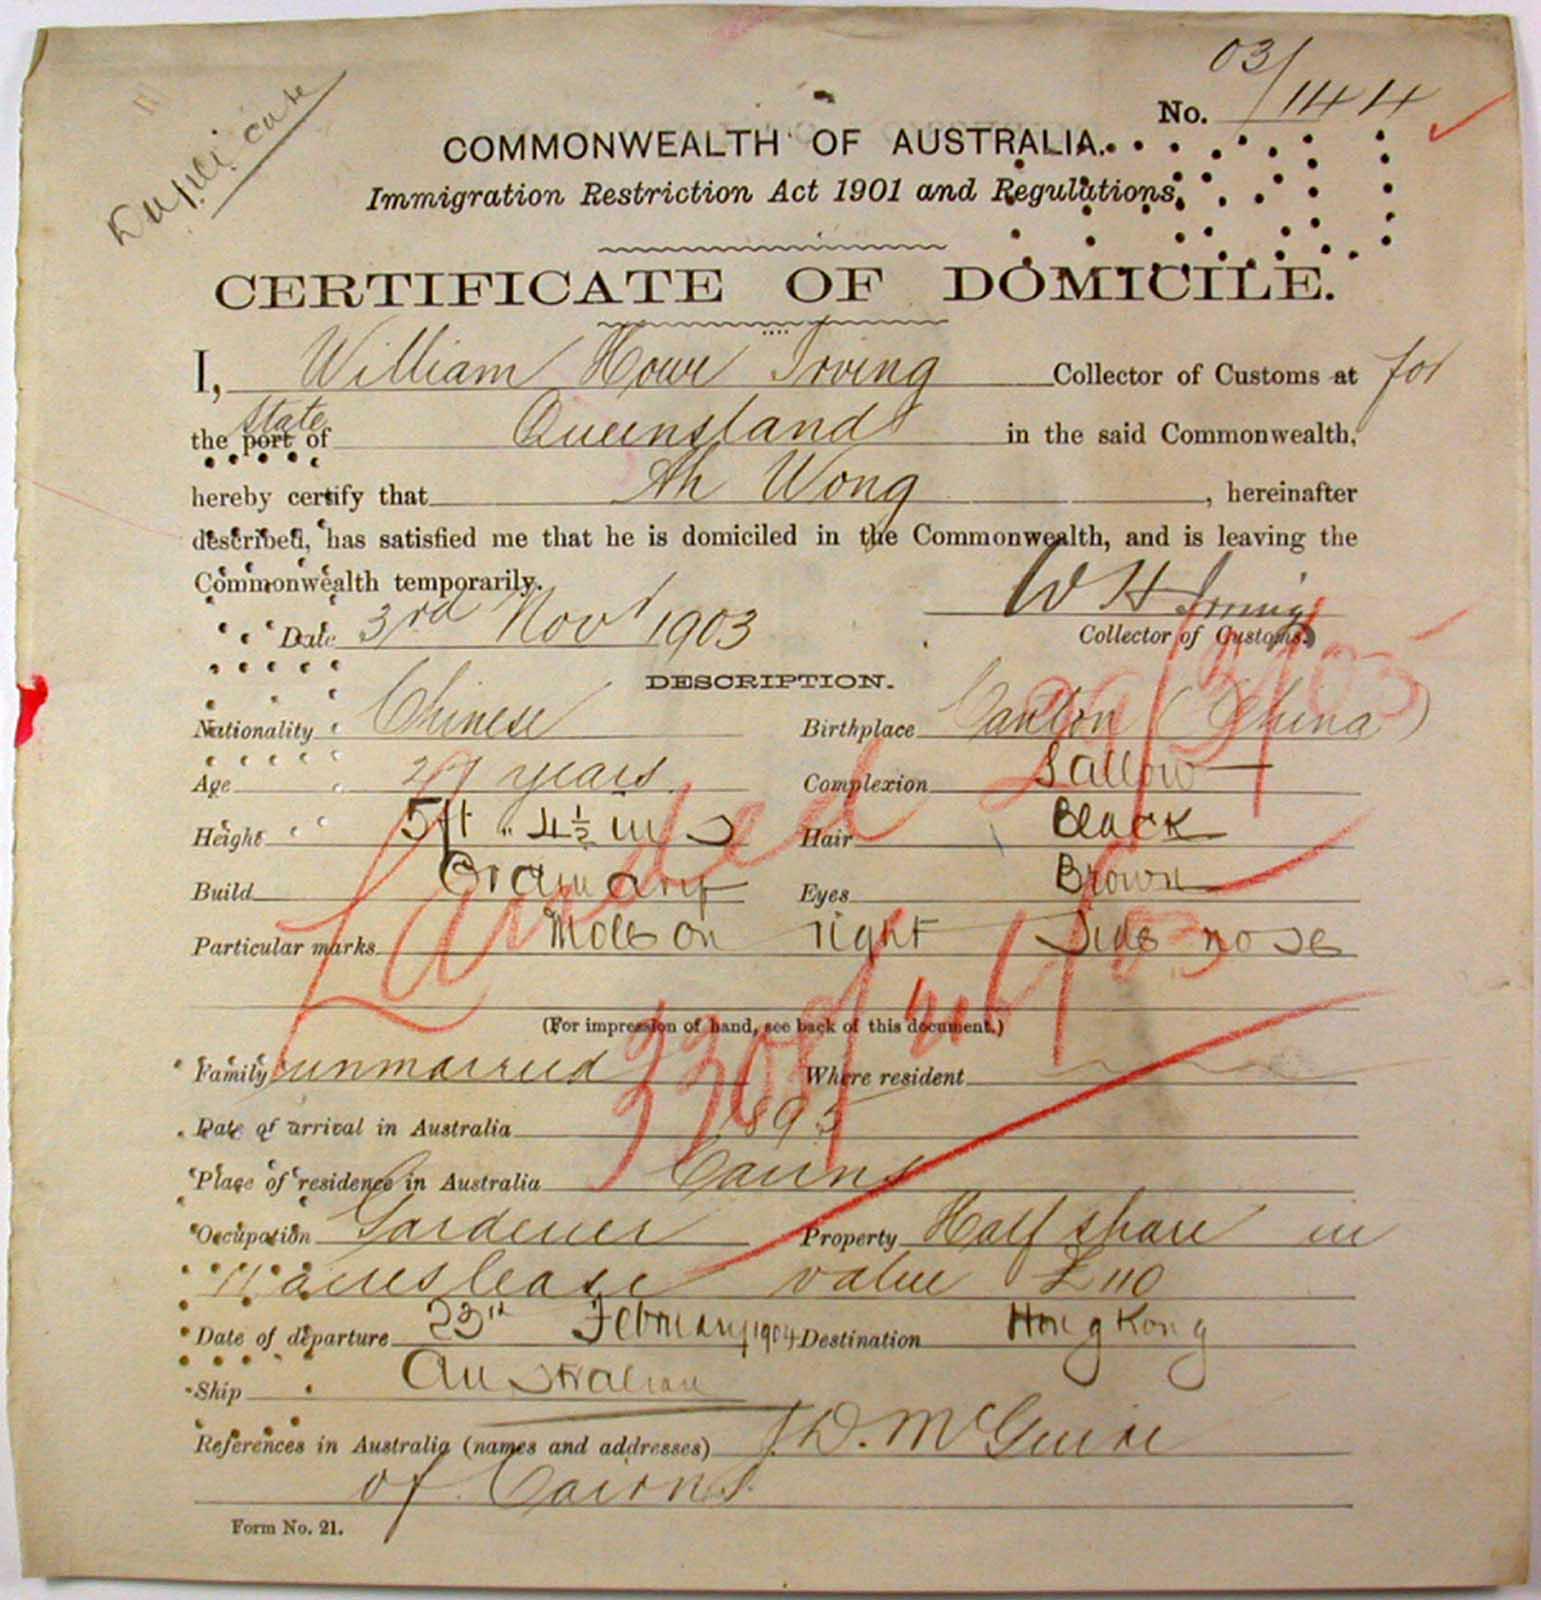 Duplicate
No. 03/144
COMMONWEALTH OF AUSTRALIA.
Immigration Restriction Act 1901 and Regulations.
CERTIFICATE OF DOMICILE.
I, William Howe Irving Collector of Customs at for
the port of state Queensland in the said Commonwealth,
hereby certify that Ah Wong, hereinafter
described, has satisfied me that he is domiciled in the Commonwealth, and is leaving the
Commonwealth temporarily.
W H Irving
Date 3rd Nov 1903 Collector of Customs.
DESCRIPTION.
Nationality Chinese Birthplace Canton (China)
Age 27 years Complexion Sallow
Height 5ft 4½ ins Hair Black
Build Ordinary Eyes Brown
Landed
Particular marks Mole on right side nose
(For impression of hand, see back of this document.)
Family unmarried Where resident
Date of arrival in Australia 1895
Place of residence in Australia Cairns
Occupation Gardener Property Half share in
11 acres lease value £110
Date of departure 23rd February 1904 Destination Hong Kong
Ship Australian
References in Australia (names and addresses) J. D. McGuire
of Cairns
Form No. 21.